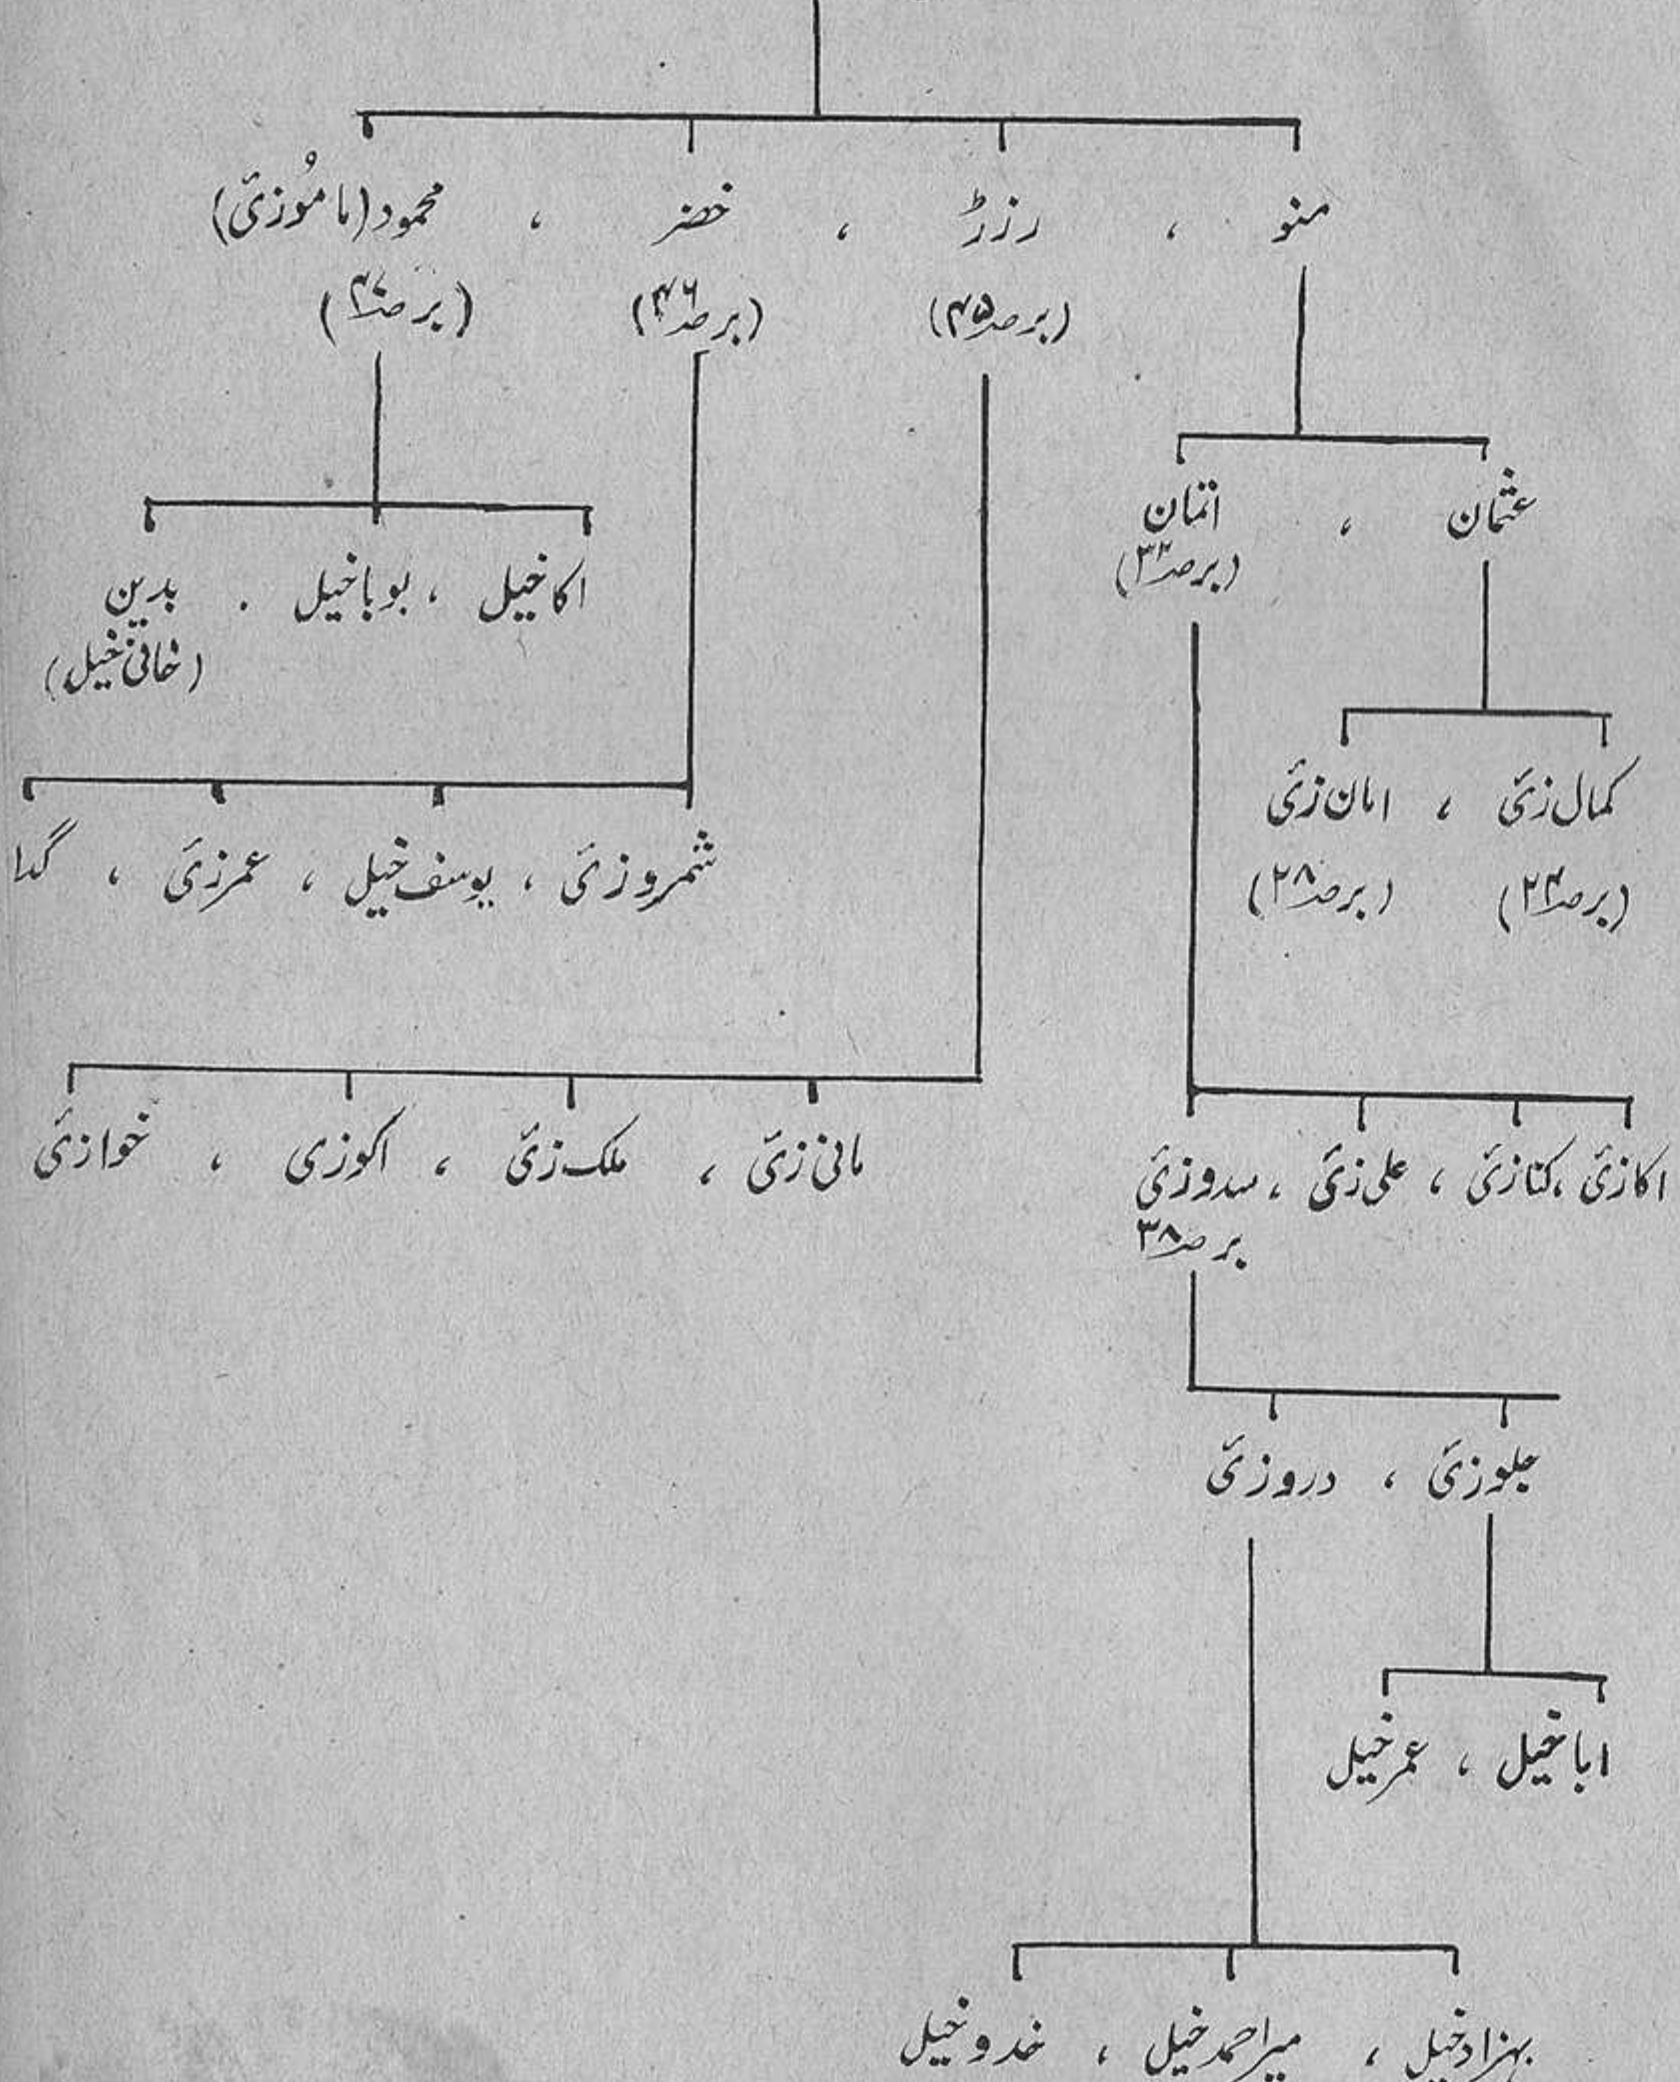 منو ، رزڑ ، خضر ، محمود (ماموُزئ)
(برصہ۴۵) (برصہ۴۶) (برصہ۴۷)
عثمان ، اتمان
(برصہ۳۲)
اکاخیل ، بوباخیل . بدین
(خانی خیل)
کمال زئ ، امان زئ
(برصہ۲۴) (برصہ۲۸)
شمروزئ ، یوسف خیل ، عمرزئ ، گدا
اکازئ ، کنازئ ، علی زئ ، سدوزئ
برصہ۳۸
مانی زئ ، ملک زئ ، اکوزی ، خوازئ
جلوزئ ، دروزئ
اباخیل ، عمرخیل
بہزادخیل ، میراحمدخیل ، خدوخیل